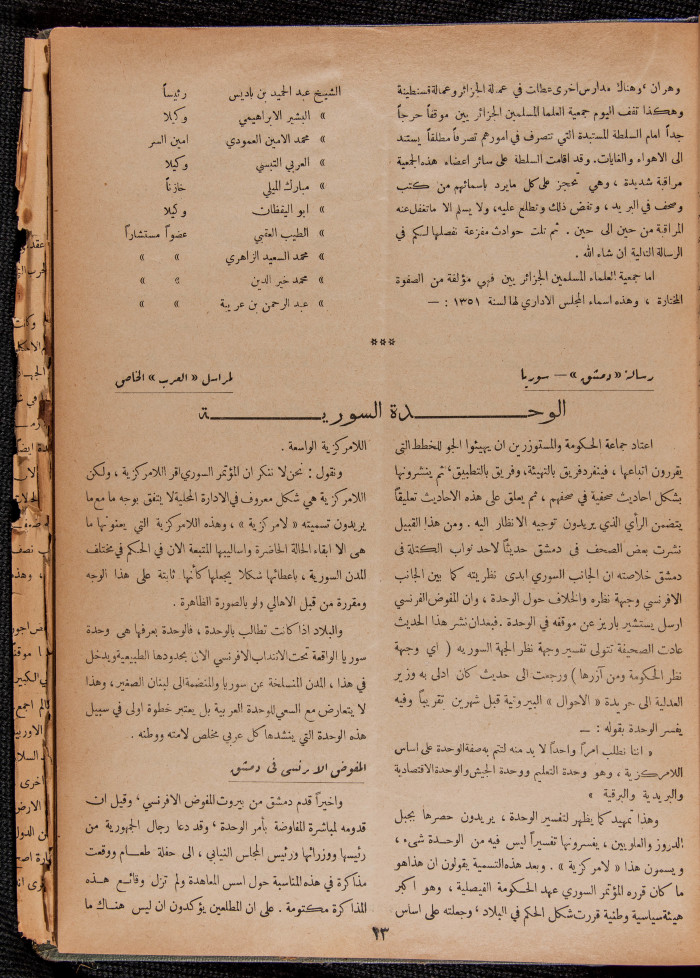 وهران ، وهناك مدارس اخرى عطلت في عمالة الجزائر وعمالة قسنطينة
وهكذا تقف اليوم جمعية العلما المسلمين الجزائريين موقفاً حرجاً
جداً امام السلطة المستبدة التي تتصرف في امورهم تصرفاً مطلقاً يستند
الى الاهواء والغايات. وقد اقامت السلطة على سائر اعضاء هذه الجمعية
مراقبة شديدة ، وهي تحجز على كل مايرد باسمائهم من كتب
وصحف في البريد ، وتفض ذلك وتطلع عليه، ولا يسلم الا ماتغفل عنه
المراقبة من حين الى حين . ثم تلت حوادث مفزعة نفصلها لسكم في
الرسالة التالية ان شاء الله .
اما جمعية العلماء المسلمين الجزائريين فهي مؤلفة من الصفوة
المختارة ، وهذه اسماء المجلس الاداري لها لسنة ١٣٥١ : —
الشيخ عبد الحميد بن باديس رئيساً
» البشير الابراهيمي وكيلا
» محمد الامين العمودي امين السر
» العربي التبسي وكيلا
» مبارك الميلي خازناً
» ابو اليقظان وكيلا
» الطيب العقبي عضواً مستشاراً
» محمد السعيد الزاهري » »
» محمد خير الدين » »
» عبد الرحمن بن عريبة » »
***
رسالة «دمشق» — سوريا
لمراسل «العرب» الخاص
الوحدة السورية
اعتاد جماعة الحكومة والمستوزرين ان يهيئوا الجو للخطط التى
يقررون اتباعها ، فينفرد فريق بالتهيئة، وفريق بالتطبيق، ثم ينشرونها
بشكل احاديث صحفية في صحفهم ، ثم يعلق على هذه الاحاديث تعليقاً
يتضمن الرأي الذي يريدون توجيه الانظار اليه . ومن هذا القبيل
نشرت بعض الصحف فى دمشق حديثاً لاحد نواب الكتلة فى
دمشق خلاصته ان الجانب السوري ابدى نظريته كما بين الجانب
الافرنسي وجهة نظره والخلاف حول الوحدة ، وان المفوض الفرنسي
ارسل يستشير باريز عن موقفه في الوحدة . فبعد ان نشر هذا الحديث
عادت الصحيفة تتولى تفسير وجهة نظر الجهة السوريه ( اي وجهة
نظر الحكومة ومن آزرها ) ورجعت الى حديث كان ادلى به وزير
العدلية الى جريدة « الاحوال » البيروتية قبل شهرين ( تقريباً وفيه
يفسر الوحدة بقوله : —
« اننا نطلب امراً واحداً لا بد منه لتتم به صفة الوحدة على اساس
اللامركزية ، وهو وحدة التعليم ووحدة الجيش والوحدة الاقتصادية
والبريدية والبرقية »
وهذا تمهيد كما يظهر لنفسير الوحدة ، يريدون حصرها بجبل
الدروز والعلويين ، يفسرونها تفسيراً ليس فيه من الوحدة شىء ،
و يسمون هذا « لامركزية » . وبعد هذه التسمية يقولون ان هذا هو
ما كان قرره المؤتمر السوري عهد الحكومة الفيصلية ، وهو اكبر
هيئة سياسية وطنية قررت شكل الحكم في البلاد ، وجعلته على اساس
اللامركزية الواسعة .
ونقول : نحن لا ننكر ان المؤتمر السوري اقر اللامركزية ، ولكن
اللامركزية هي شكل معروف في الادارة المحلية لا يتفق بوجه مامع ما
يريدون تسميته « لامركزية » ، وهذه اللامركزية التي يعنونها ما
هى الا ابقاء الحالة الحاضرة واساليبها المتبعة الان في الحكم في مختلف
المدن السورية ، باعطائها شكلا يجعلها كأنها ثابتة على هذا الوجه
ومقررة من قبل الاهالي ولو بالصورة الظاهرة .
والبلاد اذا كانت تطالب بالوحدة ، فالوحدة يعرفها هى وحدة
سوريا الواقعة تحت الانتداب الافرنسي الان بحدودها الطبيعية ويدخل
في هذا ، المدن المنسلخة عن سوريا والمنضمة الى لبنان الصغير ، وهذا
لا يتعارض مع السعي للوحدة العربية بل يعتبر خطوة اولى في سبيل
هذه الوحدة التي ينشدها كل عربي مخلص لامته ووطنه .
المفوض الافرنسى فى دمشق
واخيراً قدم دمشق من بيروت المفوض الافرنسي ، وقيل ان
قدومه لمباشرة المفاوضة بأمر الوحدة ، وقد دعا رجال الجمهورية من
رئيسها ووزرائها ورئيس المجلس النيابي ، الى حفلة طعام ووقعت
مذاكرة في هذه المناسبة حول اسس المعاهدة ولم تزل وقائع هذه
المذاكرة مكتومة . على ان المطلعين يؤكدون ان ليس هناك ما
٢٣